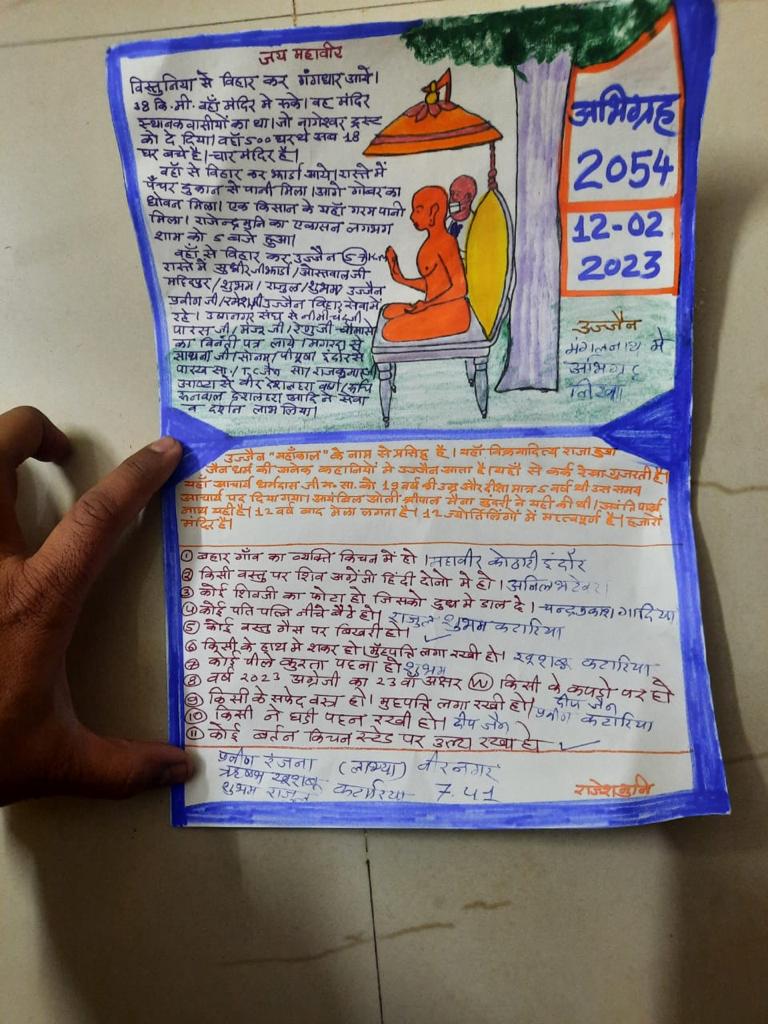 जय महावीर
विस्तुनिया से विहार कर गंगधार आये।
38 कि.मी. वहाँ मंदिर मे रुके। वह मंदिर
स्थानकवासीयों का था। जो नागेश्वर ट्रस्ट
को दे दिया। वहाँ 500 घर थे अब 18
घर बचे है। चार मंदिर है।
वहाँ से विहार कर झार्डा आये। रास्ते में
पँचर दुकान से पानी मिला। आगे गोबर का
धोवन मिला। एक किसान के यहाँ गरम पानी
मिला। राजेन्द्र मुनि का एकासन लगभग
शाम को 5 बजे हुआ।
वहाँ से विहार कर उज्जैन
रास्ते में सुधीर जी झार्डा / ओस्तवाल जी
महिदपुर / शुभम / राजुल / शुभम उज्जैन
प्रवीण जी / उज्जैन विहार सेवा मे
रहे। उद्यानगर संघ से नेमीचंद जी
पारस जी / मंजू जी / रेणु जी चौमासे
का विनंती पत्र लाये। से
साधना जी / सोनम / इंदौर से
पारस सा. / T.C जैन सा / राजकुमार जी
से वीर
आदि ने सेवा
व दर्शन लाभ लिया।
अभिग्रह
2054
12-02
2023
उज्जैन
मंगलनाथ मे
अभिग्रह
लिखा
उज्जैन "महाँकाल" के नाम से प्रसिद्ध है। यहाँ विक्रमादित्य राजा हुआ
जैन धर्म की अनेक कहानियों मे उज्जैन आता है। यहाँ से कर्क रेखा गुजरती है।
यहाँ आचार्य धर्मदास जी म. सा. को 19 वर्ष की उम्र और दीक्षा मात्र 5 वर्ष थी उस समय
आचार्य पद दिया गया। आयंबिल ओली श्रीपाल मैना सुन्दरी ने यही की थी।
यही है। 12 वर्ष बाद मेला लगता है। 12 ज्योतिर्लिंगों में महत्वपूर्ण है। हजारों
मंदिर है।
① बहार गाँव का व्यक्ति किचन में हो। महावीर कोठारी इंदौर
② किसी वस्तु पर शिव अंग्रेजी हिंदी दोनो मे हो। अनिल भटेवरा
③ कोई शिवजी का फोटो हो जिसको दुध मे डाल दे। चन्द्रप्रकाश गादिया
④ कोई पति पत्नि नीचे बैठे हो। राजुल शुभम कटारिया
⑤ कोई वस्तु गैस पर बिखरी हो। ✓
⑥ किसी के हाथ मे शकर हो। मुँहपत्ति लगा रखी हो। खुशबू कटारिया
⑦ कोई पीले कुरता पहना हो शुभम
⑧ वर्ष 2023 अंग्रेजी का 23 वा अक्षर W किसी के कपड़ो पर हो
⑨ किसी के सफेद वस्त्र हो। मुहपत्ति लगा रखी हो। दीप जैन
⑩ किसी ने घड़ी पहन रखी हो। दीप जैन प्रवीण कटारिया
⑪ कोई बर्तन किचन स्टेंड पर उल्टा रखा हो ✓
प्रवीण रंजना (लाभ्या) वीरनगर
ऋषभ खुशबू
शुभम राजुल कटारिया 7.41
राजेश मुनि